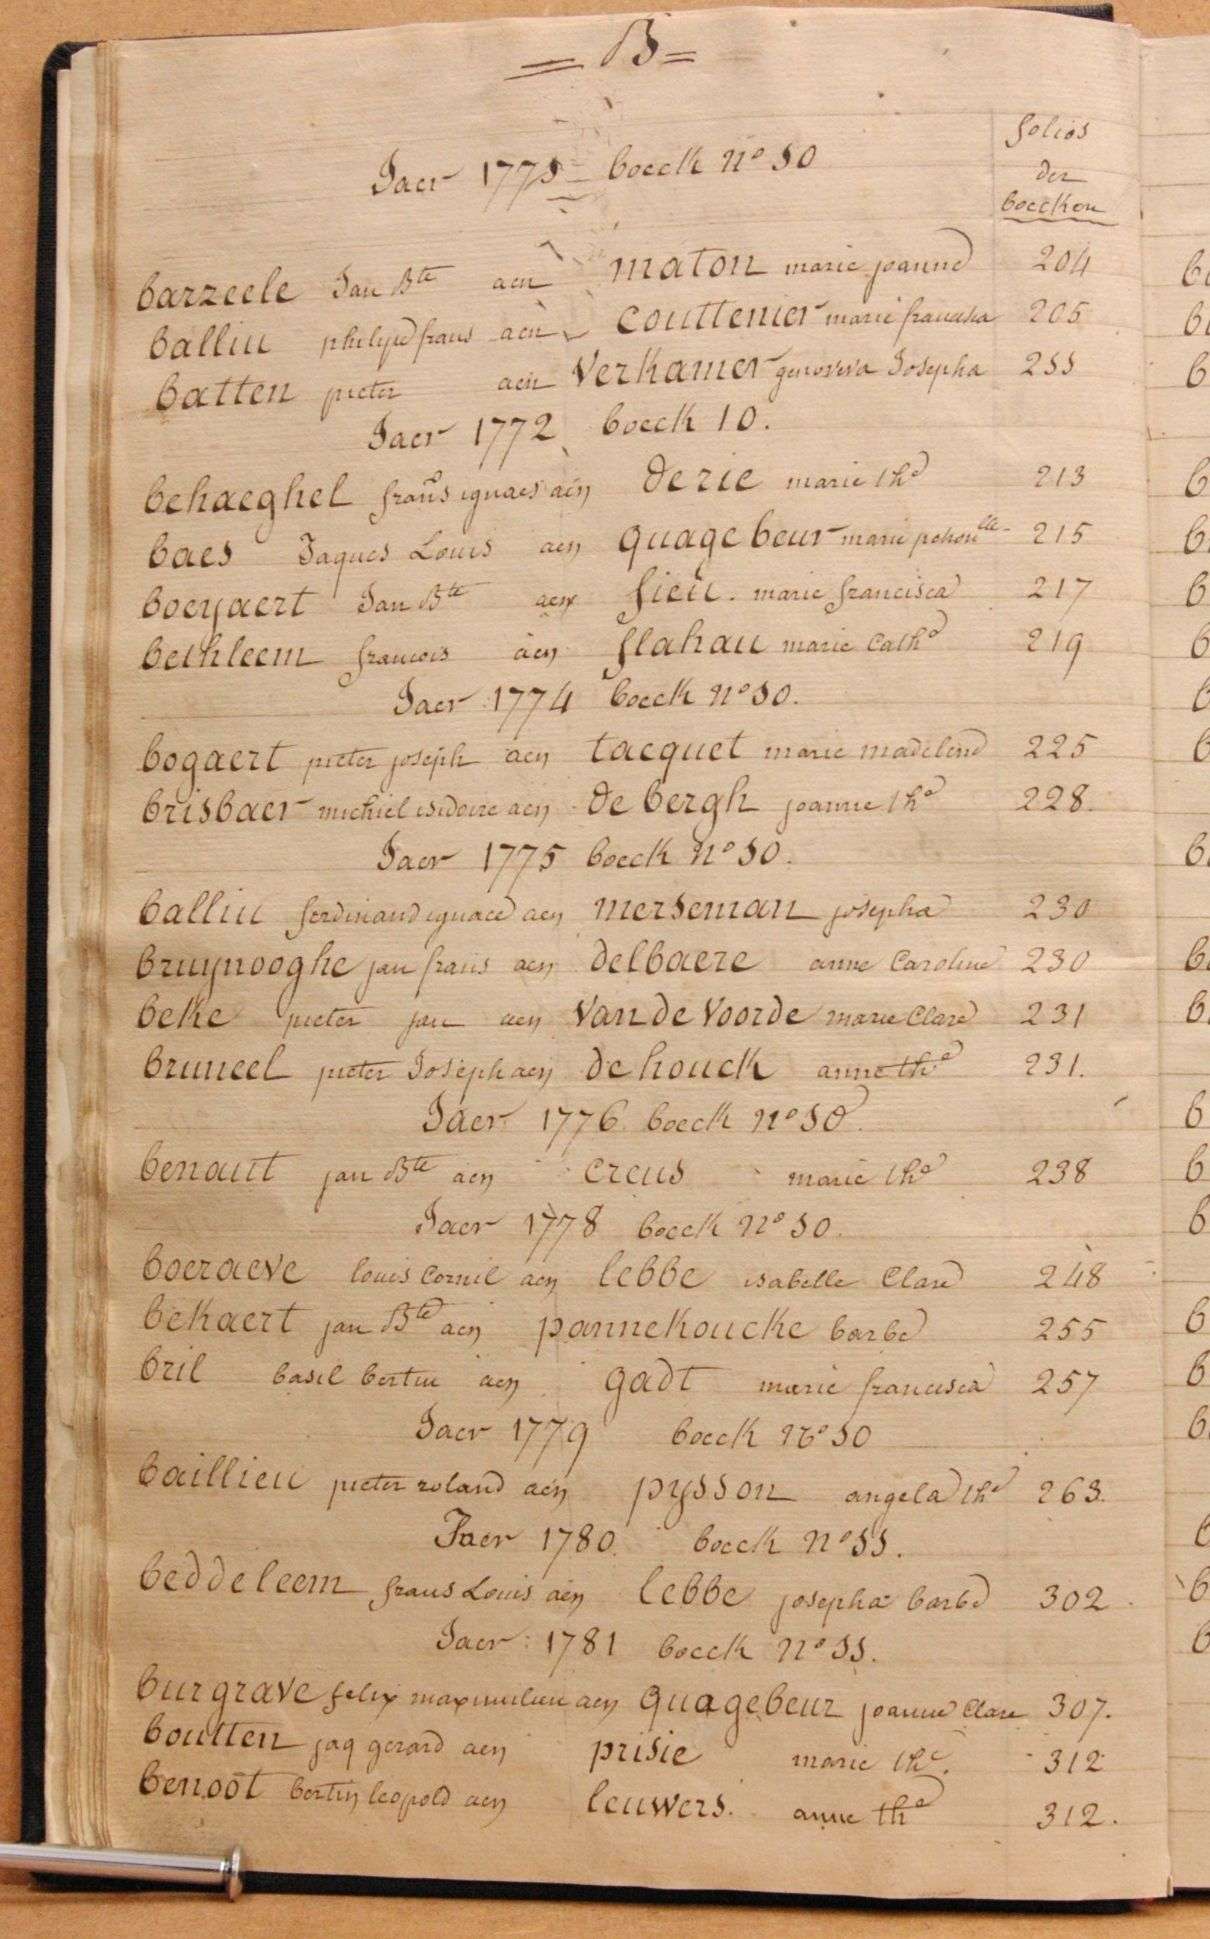 = B =
folios
der
boecken
Jaer 1775 boeck n° 50
barzeele Jan Bte aen maton marie joanne 204
balliu philipe frans aen couttenier marie francisca 205
batten pieter aen verkamer genoveva Josepha 255
Jaer 1772 boeck 10.
behaeghel frans ignaes aen derie marie the 213
baes Jaques Louis aen quagebeur marie petronelle 215
boeyaert Jan Bte aen fieu. marie francisca 217
bethleem francois aen flahau marie cathe 219
Jaer 1774 boeck n° 50.
bogaert pieter joseph aen tacquet marie madelene 225
brisbaer michiel isidoire aen de bergh joanne the 228.
Jaer 1775 boeck n° 50.
balliu ferdinand ignace aen merseman josepha 230
bruynooghe jan frans aen delbaere anne caroline 230
beke pieter jan aen van de voorde marie clare 231
bruneel pieter Joseph aen dehouck anne the 231.
Jaer 1776 boeck n° 50.
benaut jan Bte aen creus marie the 238
Jaer 1778 boeck n° 50.
boeraeve louis cornil aen lebbe isabelle clare 248
bekaert jan Bte aen pannekoucke barbe 255
bril basil bertin aen gadt marie francisca 257
Jaer 1779 boeck n° 50
baillieu pieter roland aen pysson angela the 263.
Jaer 1780 boeck n° 55.
beddeleem frans Louis aen lebbe josepha barbe 302
Jaer 1781 boeck n° 55.
burgrave felix maximilien aen quagebeur joanne clare 307.
boutten jaq gerard aen prisie marie the. 312
benoot bertin leopold aen leuwers. anne the 312.